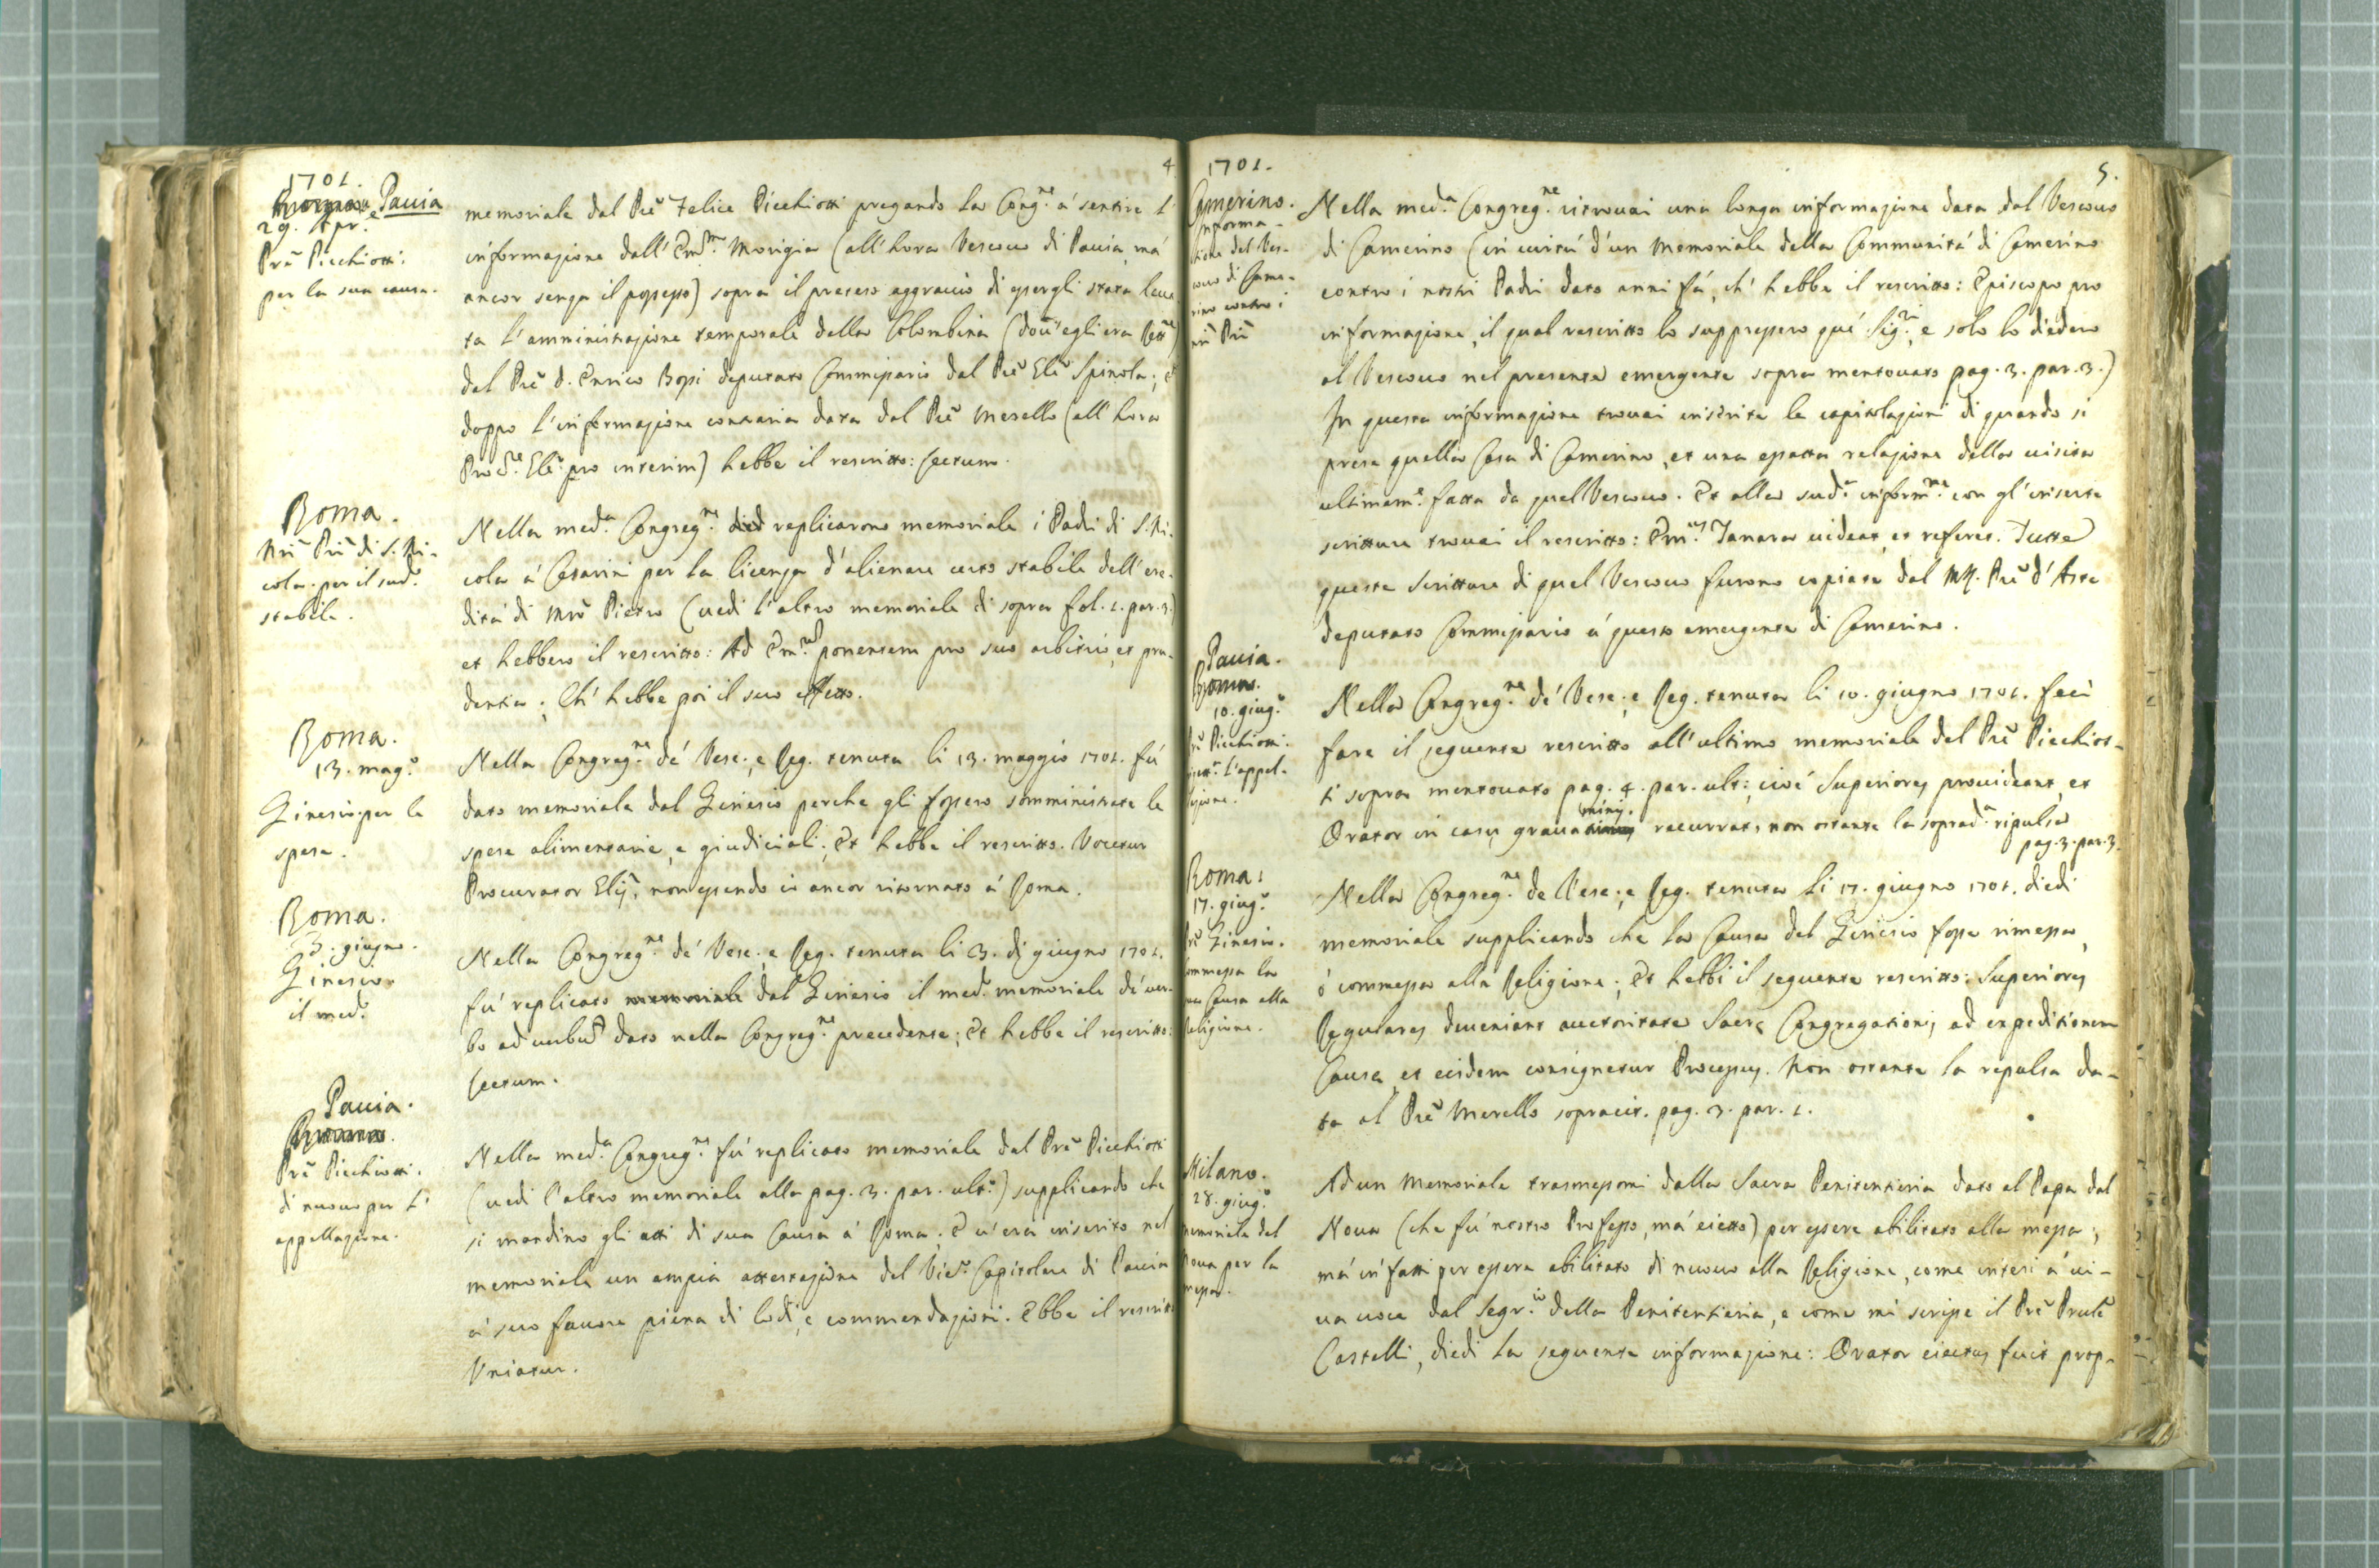 4
1701.
Pavia
29. Apr.
Prē Picchiotti:
per la sua causa.
memoriale dal Prē Felice Picchiotti pregando la Cong.ne á sentire l'
informazione dall' Em.mo Morigia (all'hora Vescovo di Pavia, má
ancor senza il possesso) sopra il preteso aggravio di essergli stata leva-
ta l'amministrazione temporale della Colombina (dov'egli era Rett.re)
dal Prē D. Enrico Rossi deputato Commissario dal Prē Glē Spinola; et
doppo l'informazione contraria data dal Prē Merello (all'hora
Proc.re Glē pro interim) hebbe il rescritto: Lectum.
Roma.
Nri Pri di S. Ni-
cola. per il sud.o
stabile.
Nella med.a Congreg.ne died replicarono memoriale i Padri di S. Ni-
cola á Cesarini per la licenza d'alienare certo stabile dell'ere-
ditá di Mro Pietro (vedi l'altro memoriale di sopra fol. 1. par. 3.)
et hebbero il rescritto: Ad Em.um ponentem pro suo arbitrio, et pru-
dentia; Ch'hebbe poi il suo effetto.
Roma.
13. mag.o
Ginesio per le
spese.
Nella Congreg.ne dé Vesc. e Reg. tenuta li 13. maggio 1701. fú
dato memoriale dal Ginesio perche gli fossero somministrate le
spese alimentarie, e giudiciali; Et hebbe il rescritto. Vocetur
Procurator Glis, non essendo io ancor ritornato á Roma.
Roma.
3. giugno.
Ginesio
il med.o
Nella Congreg.ne dé Vesc. e Reg. tenuta li 3. di giugno 1701.
fú replicato memoriale dal Ginesio il med.o memoriale dé ver-
bo ad verbū dato nella Congreg.ne precedente; Et hebbe il rescritto:
Lectum.
Pavia.
Roma.
Prē Picchiotti.
di nuovo per l'
appellazione.
Nella med.a Congreg.ne fú replicato memoriale dal Prē Picchiotti
(vedi l'altro memoriale alla pag. 3. par. ult.o) supplicando che
si mandino gli atti di sua Causa á Roma; E v'era inserito nel
memoriale un ampia attestazione del Vic.o Capitolare di Pavia
á suo favore piena di lodi, e commendazioni. Ebbe il rescritto
Uniatur.
5.
1701.
Camerino.
Informa-
tione del Ves-
covo di Came-
rino contro i
nri Pri
Nella med.a Congreg.ne ritrovai una longa informazione data dal Vescovo
di Camerino (in virtú d'un Memoriale della Communitá di Camerino
contro i nostri Padri dato anni fá, ch'hebbe il rescritto: Episcopo pro
informazione, il qual rescritto lo suppressero qué Sig.ri, e solo lo diedero
al Vescovo nel presente emergente sopra mentovato pag. 3. par. 3.)
In questa informazione trovai inserite le capitolazioni di quando si
prese quella Casa di Camerino, et una esatta relazione della visita
ultimam.e fatta da quel Vescovo. Et alla sud.a inform.ne con gl'inserte
scritture trovai il rescritto: Em.us Tanara videat, et referet. Tutte
queste scritture di quel Vescovo furono copiate dal M.R. Prē d'Aste
deputato Commissario á questo emergente di Camerino.
Pavia.
Roma.
10. giug.o
Prē Picchiotti.
l'appel-
lazione.
Nella Congreg.ne dé Vesc. e Reg. tenuta li 10. giugno 1701. feci
fare il seguente rescritto all'ultimo memoriale del Prē Picchiot-
ti sopra mentovato pag. 4. par. ult: cioé Superiores provideant, et
Orator in casu gravaminis recurrat, non ostante la soprad.a ripulsa
pag. 3. par. 3.
Roma:
17. giug.o
Prē Ginesio.
Commessa la
sua Causa alla
Religione.
Nella Congreg.ne de Vesc. e Reg. tenuta li 17. giugno 1701. diedi
memoriale supplicando che la Causa del Ginesio fosse rimessa,
ó commessa alla Religione; Et hebbi il seguente rescritto: Superiores
Regulares deveniant auctoritate Sacrę Congregationis ad expeditionem
Causę, et eisdem consignetur Processus. Non ostante la repulsa da-
ta al Prē Merello sopracit. pag. 3. par. 1.
Milano.
28. giug.o
Memoriale del
Nova per la
messa.
Ad un Memoriale trasmessomi dalla Sacra Penitentieria dato al Papa dal
Nova (che fú nostro Professo, má eietto) per essere abilitato alla messa;
má in fatti per essere abilitato di nuovo alla Religione, come intesi á vi-
va voce dal Segr.io della Penitentieria, e come mi scrisse il Prē Prule
Castelli, diedi la seguente informazione: Orator eiectus fuit prop-